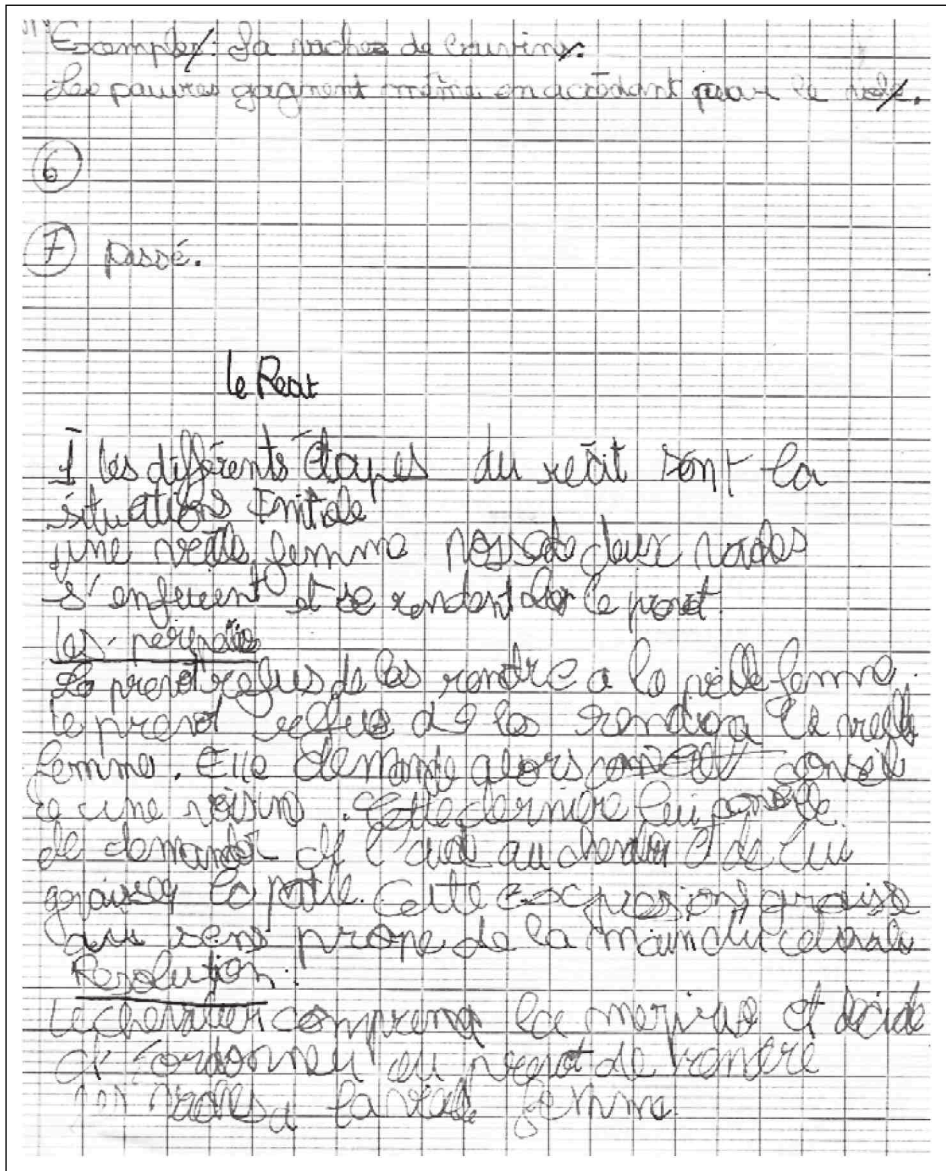 Exemple : La vaches de
Les pauvres gagnent même en accédant pour le
6
7 passé.
le Recit
1 les différents étapes du recit sont la
situations Initiale
une veille femme possede deux vaches
s'enfuient et se rendent le prevot
les peripeties
Le prevot refus de las rendre a la veille femme.
le prevot refus de les rendre a la veille
femme. Elle demande alors conseil
a une voisine. Cette derniere lui conseille
de demander de l'aide au chevalier de lui
graisser la patte. Cette expresion graisse
au sens propre de la main du
Resolution.
Le chevalier comprend la meprise et decide
d'ordonner au prevot de rendre
vaches a la veille femme